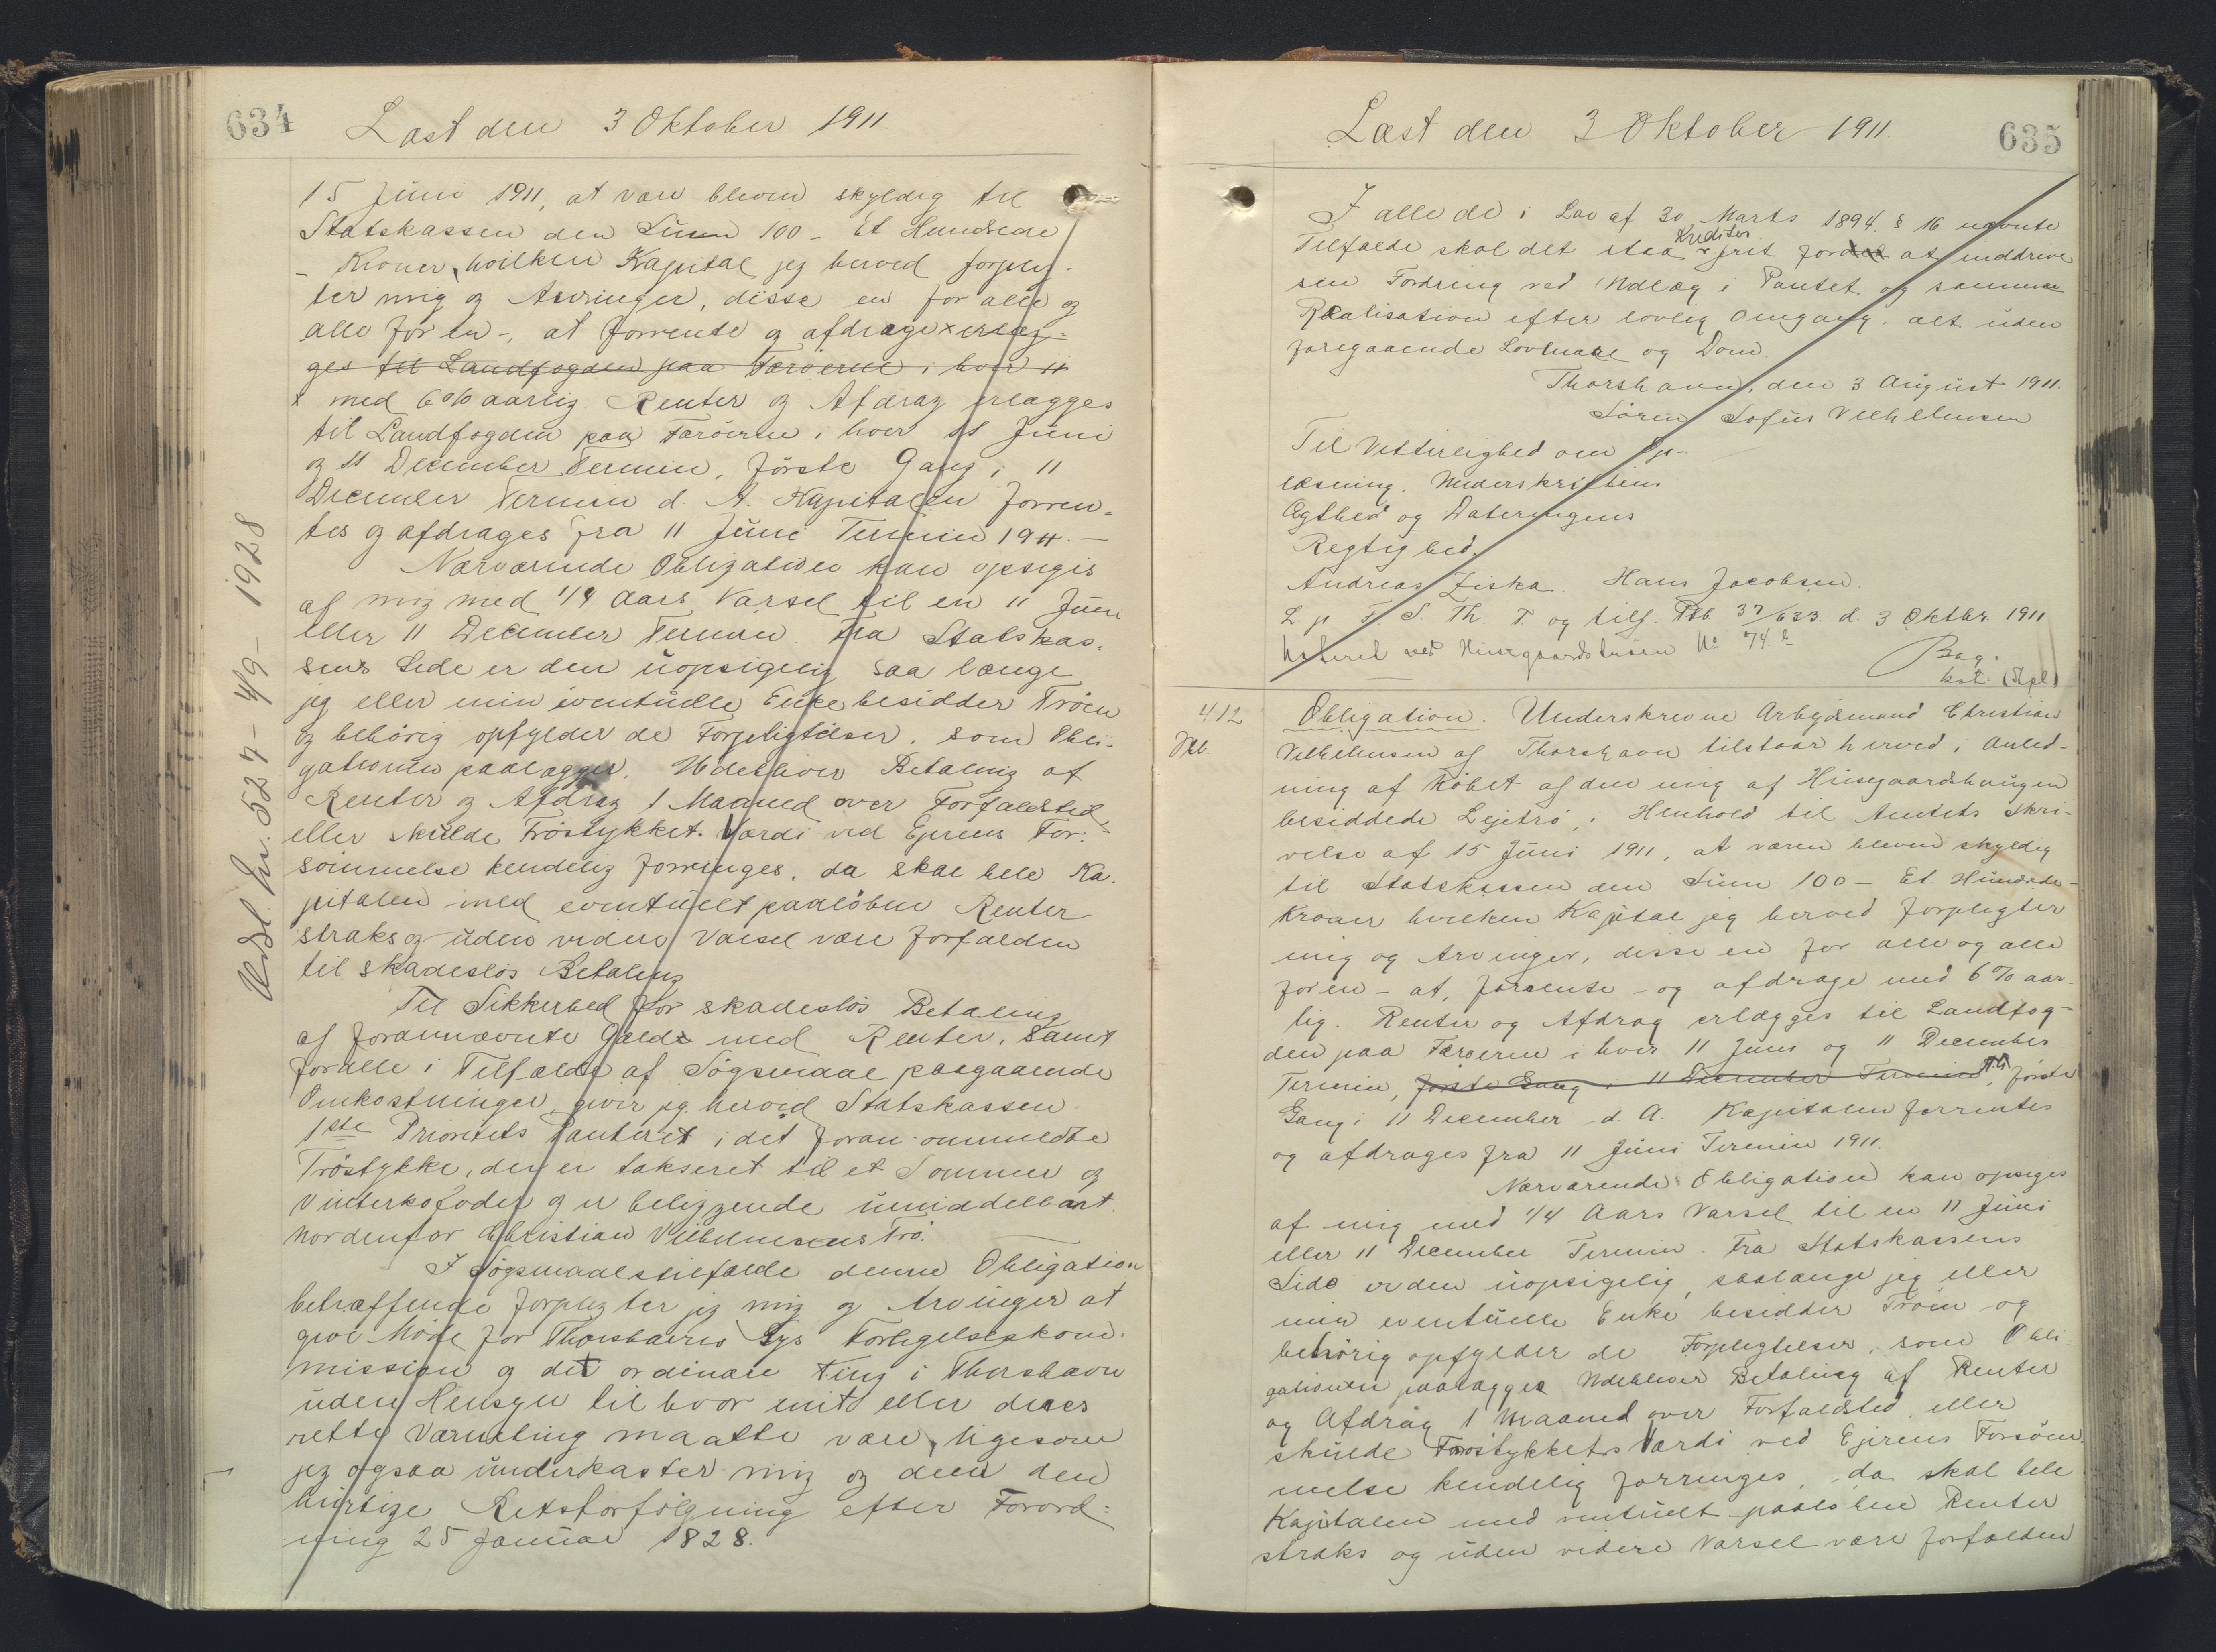 634
Læst den 3 Oktober 1911.
15 Juni 1911, at være bleven skyldig til
Statskassen den Sum 100 - Et Hundrede
- Kroner, hvilken Kapital jeg herved forplig-
ter mig og Arvinger, disse en for alle og
alle for en -, at forrente og afdrage × erlæg-
ges til Landfogden paa Færøerne i hver 11
× med 6 % aarlig Renter og Afdrag erlægges
til Landfogden paa Færøerne i hver 11 Juni
og 11 December Termin, første Gang i 11
December Termin d. A. Kapitalen forren-
tes og afdrages fra 11 Juni Termin 1911. -
Nærværende Obligation kan opsiges
af mig med 1/4 Aars Varsel til en 11 Juni
eller 11 December Termin. Fra Statskas-
sens Side er den uopsigelig saa længe
jeg eller min eventuelle Enke besidder Trøen
og behørig opfylder de Forpligtelser, som Obli-
gationen paalægger. Udebliver Betaling af
Renter og Afdrag 1 Maaned over Forfaldstid,
eller skulde Trøstykkets Værdi ved Ejerens For-
sømmelse kendelig forringes, da skal hele Ka-
pitalen med eventuelt paaløbne Renter
straks og uden videre Varsel være forfalden
til skadesløs Betaling
Til Sikkerhed for skadesløs Betaling
af forannævnte Gæld med Renter, samt
for alle i Tilfælde af Søgsmaal paagaaende
Omkostninger, giver jeg herved Statskassen
1ste Prioritets Panteret i det foran ommeldte
Trøstykke, der er takseret til et Sommer og
Vinterkofoder og er beliggende umiddelbart
nordenfor Christian Vilhelmsens Trø.
I Søgsmaalstilfælde denne Obligation
betræffende forpligter jeg mig og Arvinger at
give Møde for Thorshavns Bys Forligelseskom-
mission og det ordinære Ting i Thorshavn
uden Hensyn til hvor mit eller deres
rette Værneting maatte være, ligesom
jeg ogsaa underkaster mig og dem den
hurtige Retsforfølgning efter Forord-
ning 25 Januar 1828.
Udsl. Nr. 527 - 4/9 - 1928
Læst den 3 Oktober 1911.
635
I alle de i Lov af 30 Marts 1894 § 16 nævnte
Tilfælde skal det staa Kreditor frit for at inddrive
sin Fordring ved Udlæg i Pantet og sammes
Realisation efter lovlig Omgang, alt uden
foregaaende Lovmaal og Dom.
Thorshavn, den 3 August 1911.
Sören Sofus Vilhelmsen
Til Vitterlighed om Op-
læsning, Underskriftens
Ægthed og Dateringens
Rigtighed.
Andreas Ziska. Hans Jacobsen.
L. p. T. S. Th. T. og tilf. Ptb. 37/633. d. 3 Oktbr. 1911
Noteret ved Husgaardshusen No 74.
Bag.
kst. (Spl)
412
Obligation. Underskrevne Arbejdsmand Christian
Vilhelmsen af Thorshavn tilstaar herved i Anled-
ning af Købet af den mig af Husegaardshaugen
besiddede Lejetrø, i Henhold til Amtets Skri-
velse af 15 Juni 1911, at være bleven skyldig
til Statskassen den Sum 100 - Et Hundrede -
Kroner hvilken Kapital jeg herved forpligter
mig og Arvinger, disse en for alle og alle
for en - at, forrente - og afdrage med 6 % aar-
lig. Renter og Afdrag erlægges til Landfog-
den paa Færøerne i hver 11 Juni og 11 December
Termin, første Gang i 11 December Termin, første
Gang i 11 December d. A. Kapitalen forrentes
og afdrages fra 11 Juni Termin 1911.
Nærværende Obligation kan opsiges
af mig med 1/4 Aars Varsel til en 11 Juni
eller 11 December Termin. Fra Statskassens
Side er den uopsigelig, saalænge jeg eller
min eventuelle Enke besidder Trøen og
behørig opfylder de Forpligtelser, som Obli-
gationen paalægger. Udebliver Betaling af Renter
og Afdrag 1 Maaned over Forfaldstid, eller
skulde Trøstykkets Værdi ved Ejerens Forsøm-
melse kendelig forringes, da skal hele
Kapitalen med eventuelt paaløbne Renter
straks og uden videre Varsel være forfalden